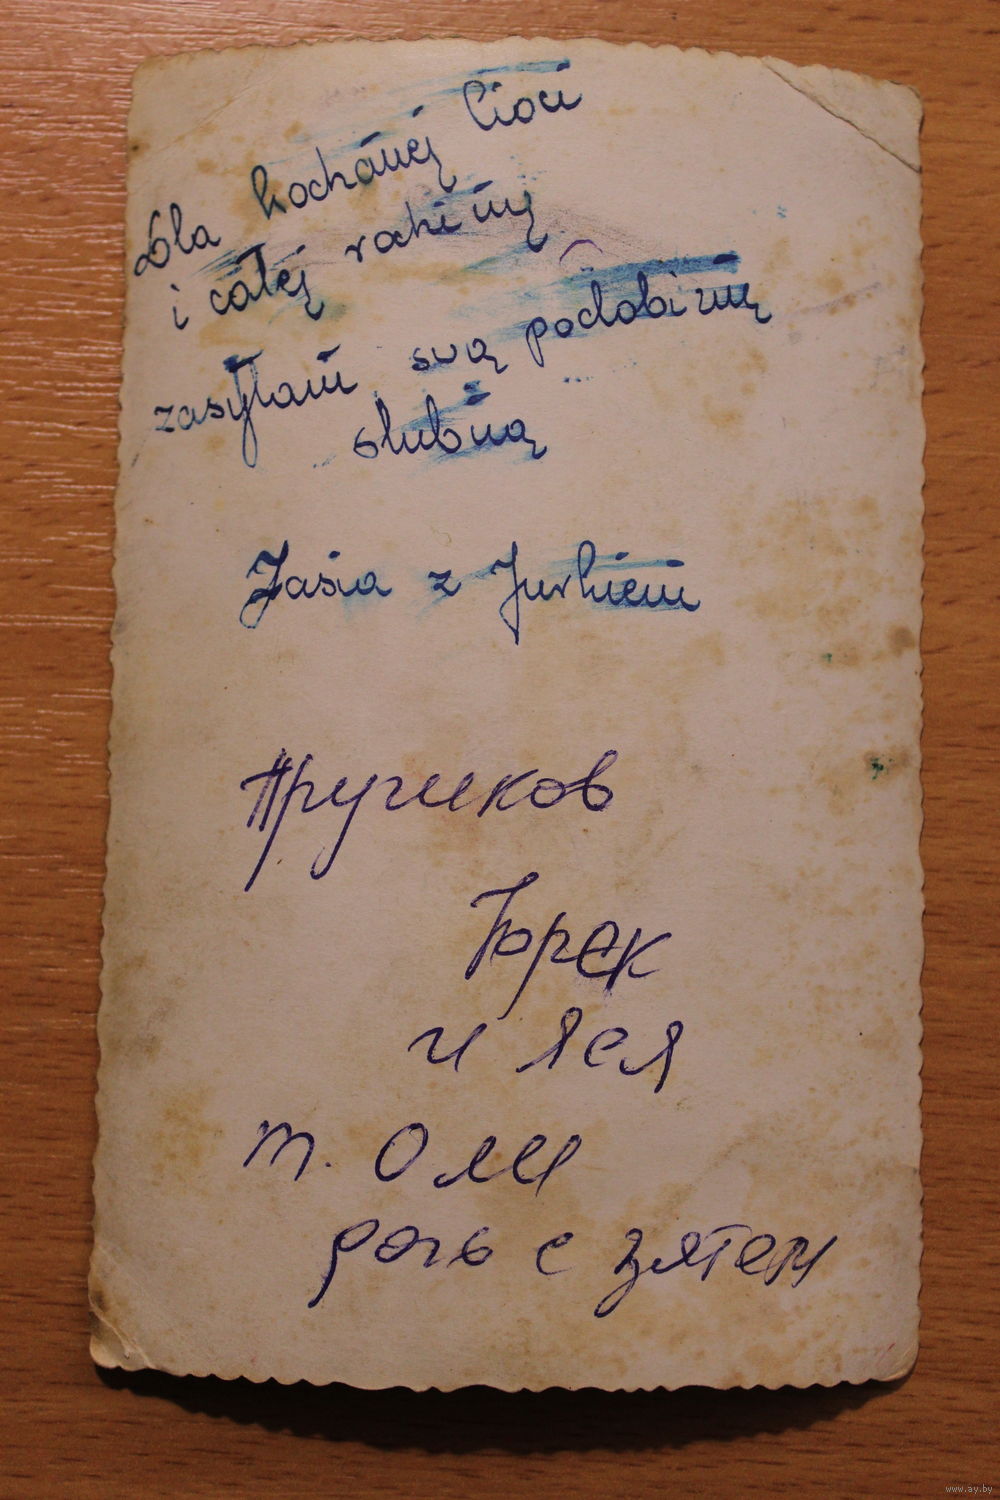 Dla kochanej Cioci
i całej rodziny
zasyłam swą podobiznę
slubną
Jasia z Jurkiem
Юрек
и Яся
т. Оли
дочь с зятем
www.ay.by